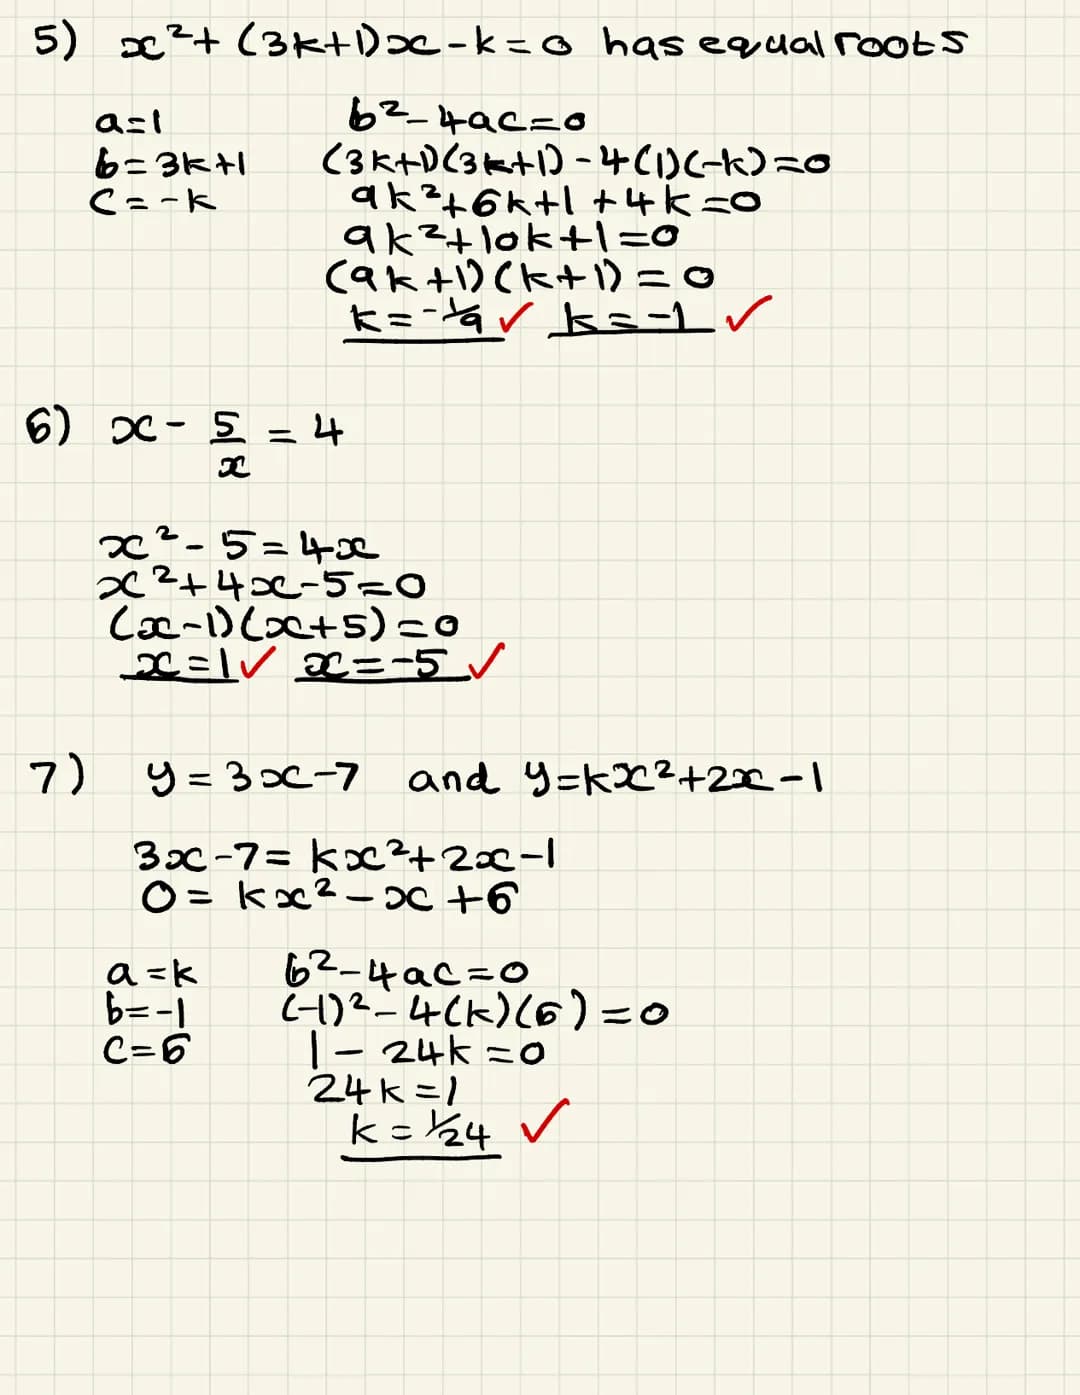 5) x²+(3k+1)x-k=0 has equal roots
a=1
b=3k+1
c=-k
b²-4ac=0
(3k+1)(3k+1)-4(1)(-k)=0
9k²+6k+1+4k=0
9k²+10k+1=0
(9k+1)(k+1)=0
k=-1/9 ✓ k=-1 ✓
6) x-5/x=4
x²-5=4x
x²+4x-5=0
(x-1)(x+5)=0
x=1 ✓ x=-5 ✓
7) y=3x-7 and y=kx²+2x-1
3x-7=kx²+2x-1
0=kx²-x+6
a=k
b=-1
c=6
b²-4ac=0
(-1)²-4(k)(6)=0
1-24k=0
24k=1
k=1/24 ✓